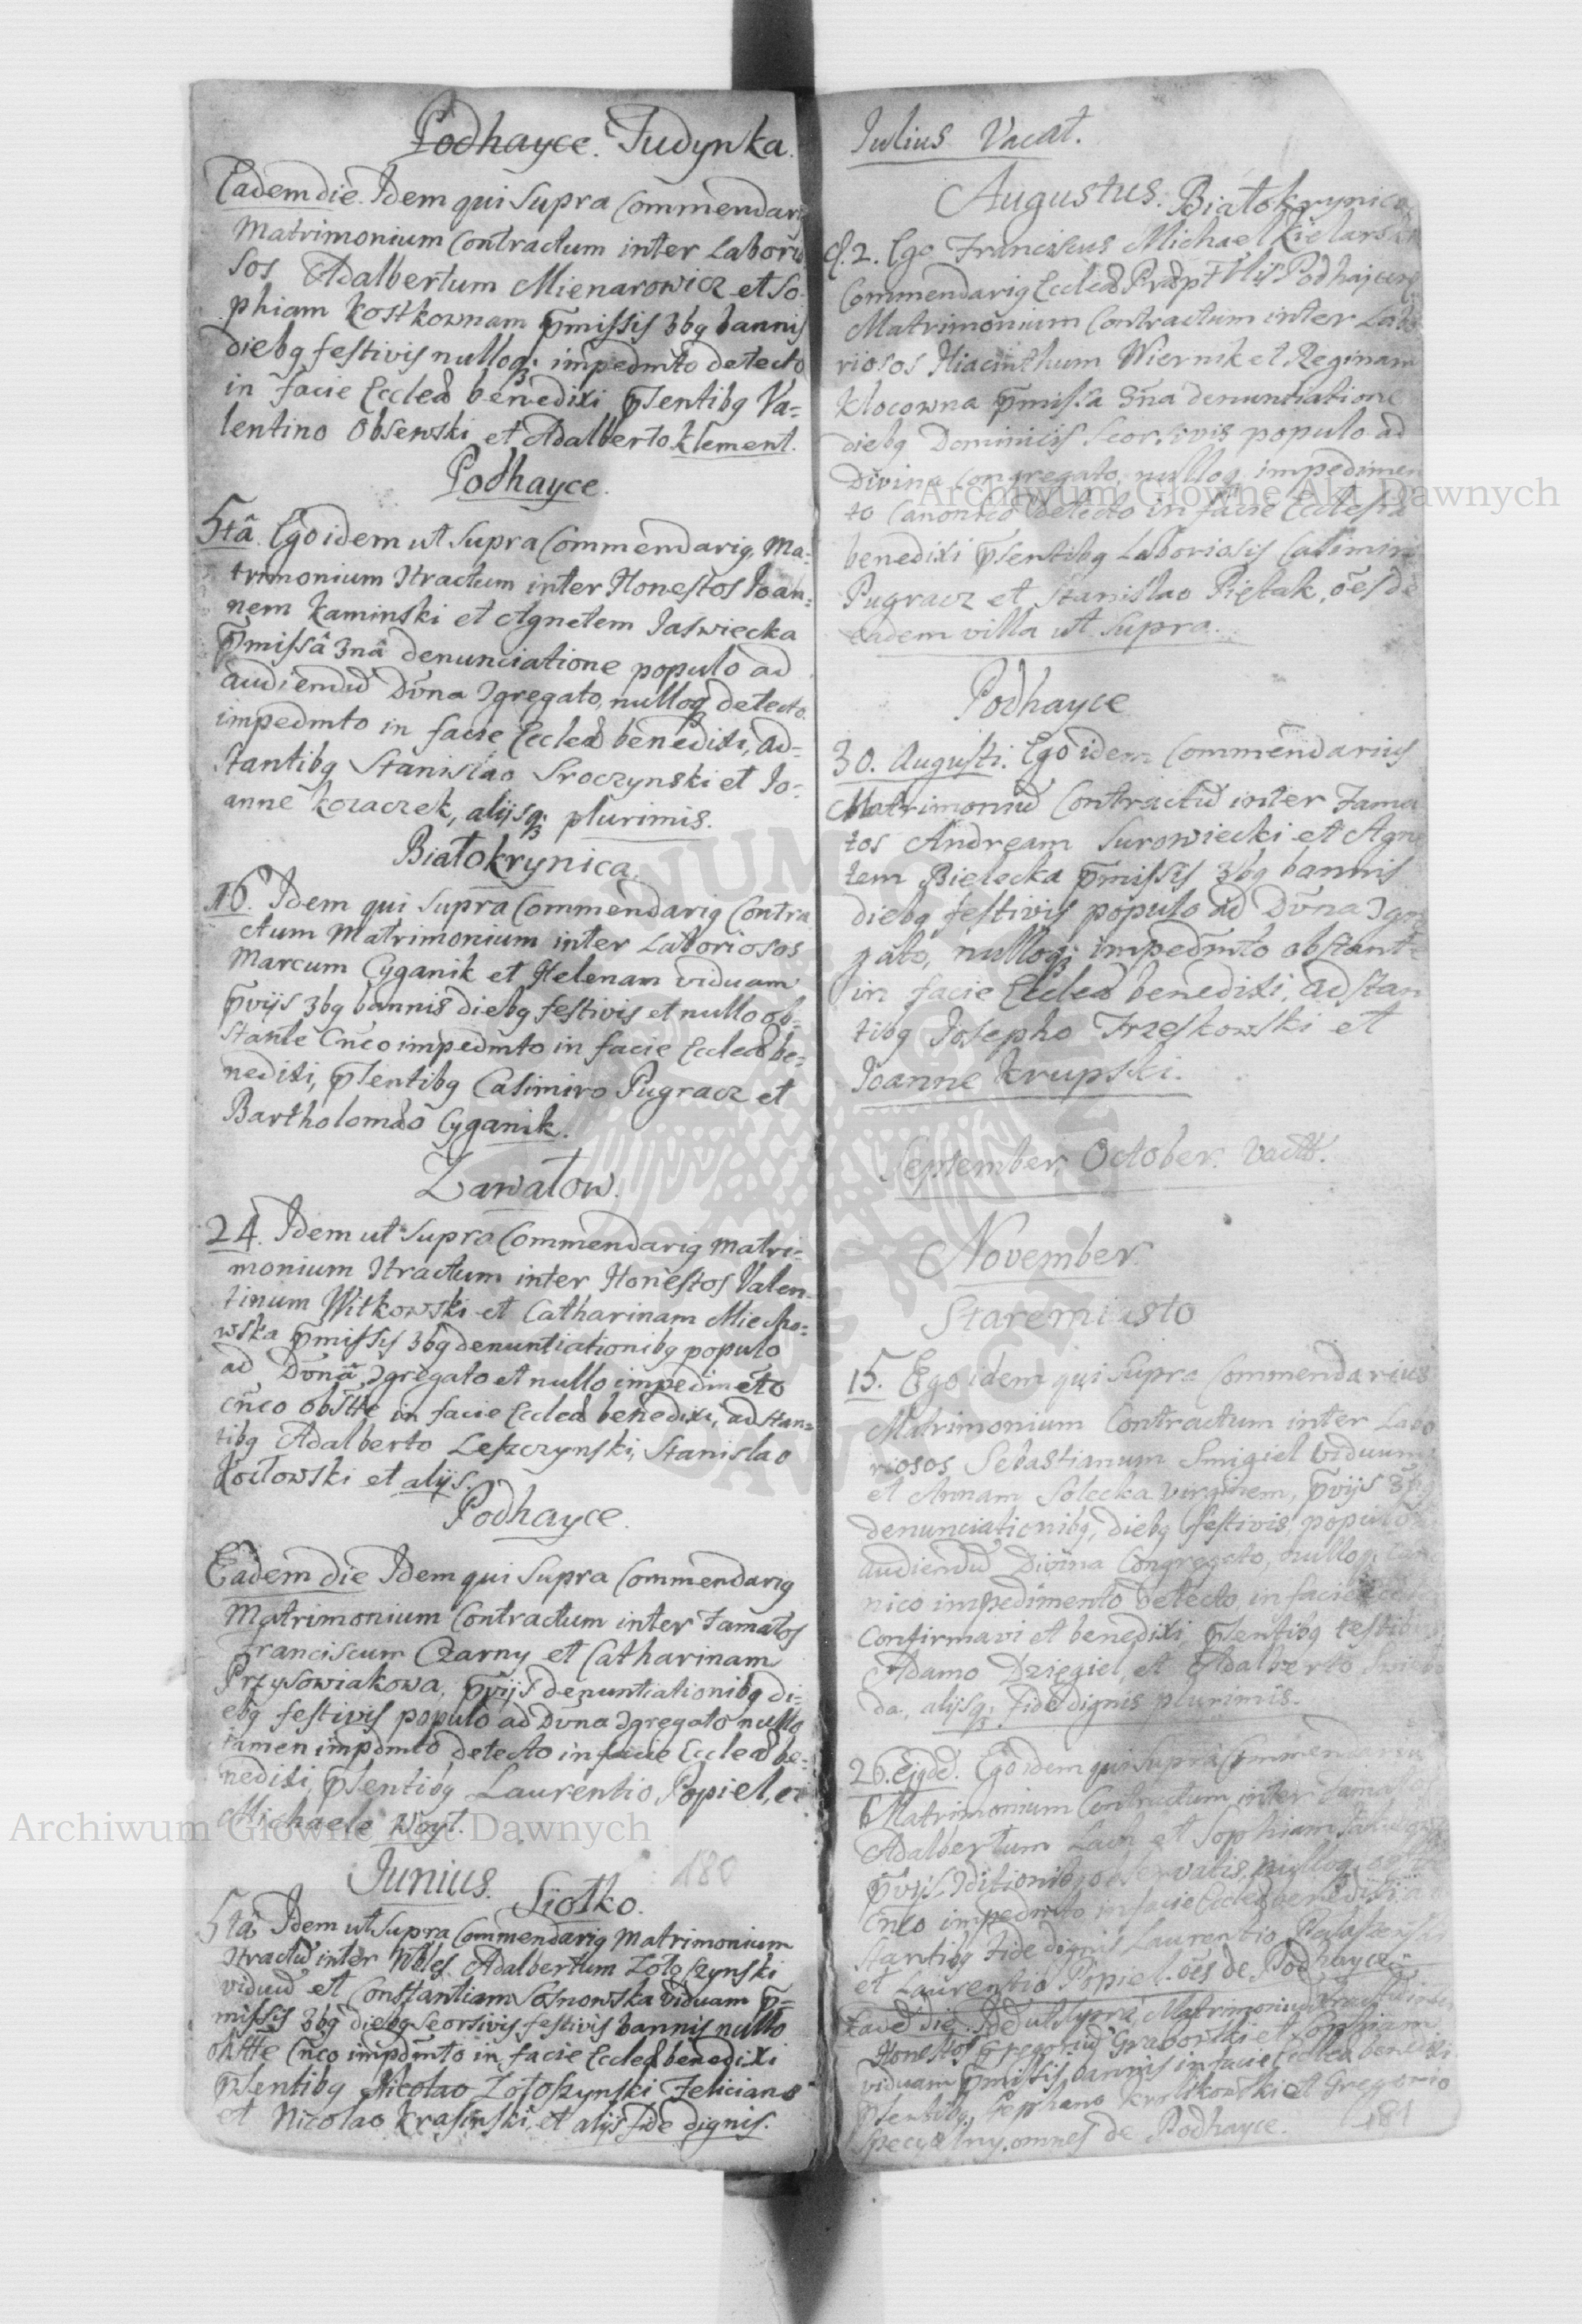 Podhayce. Judynka.
Eadem die. Idem qui supra Commendarig
Matrimonium Contractum inter Laborio
sos Adalbertum Mienarowicz et So-
phiam Kostkownam p̄missis 3bq bannis
diebq festivis nulloq; impedmto detecto
in facie Eccleæ benedixi p̄sentibq Va=
lentino Obsewski et Adalberto Klement.
Podhayce.
5tâ. Ego idem ut supra Commendarig, Ma-
trimonium Itractum inter Honestos Joan-
nem Kaminski et Agnetem Jaswiecka
p̄missâ 3nâ denunciatione populo ad
audiendū Dv̄na Igregato, nulloq detecto
impedmto in facie Eccleæ benedixi, ad=
stantibq Stanislao Sroczynski et Jo-
anne Kozaczek, alijsq; plurimis.
Białokrynica.
16. Idem qui supra Commendarig Contra
ctum Matrimonium inter Laboriosos
Marcum Cyganik et Helenam viduam
p̄vijs 3bq bannis diebq festivis et nullo ob-
stante Cn̄co impedmto in facie Eccleæ be=
nedixi, p̄sentibq Casimiro Pugracz et
Bartholomæo Cyganik.
Zawałow.
24. Idem ut supra Commendarig Matri-
monium Itractum inter Honestos Valen-
tinum Witkowski et Catharinam Miecho-
wska p̄missis 3bq denuntiationibq populo
ad Dv̄nâ Igregato et nullo impedimēto
cn̄co obstte in facie Eccleæ benedixi, adstan=
tibq Adalberto Leszczynski, Stanislao
Kociowski et alijs.
Podhayce.
Eadem die Idem qui supra Commendarig
Matrimonium Contractum inter Famatos
Franciscum Czarny et Catharinam
Przysowiakowa, p̄vijs denuntiationibq di-
ebq festivis populo ad Dvna Igregato nullo
tamen impdmto detecto in facie Eccleæ be-
nedixi, p̄sentibq Laurentio Popiel, et
Michaele Woyt.
Junius. Siołko.
180
5tâ Idem ut supra Commendarig Matrimonium
Itractū inter Nobles Adalbertum Zołoszynski
viduū et Constantiam Sosnowska viduam p̄-
missis 3bq diebq seorsivis festivis bannis nullo
obstte Cn̄co impdmto in facie Eccleæ benedixi
p̄sentibq Nicolao Zołoszynski Feliciano
et Nicolao Krasinski et alijs fide dignis.
Julius Vacat.
Augustus. Białokrynica
d. 2. Ego Franciscus Michael Kielarski
Commendarig Eccleæ Præptlis Podhajcen
Matrimonium Contractum inter Labo
riosos Hiacinthum Wiernik et Reginam
Klocowna p̄missa 3n̄a denuntiatione
diebq Dominicis seorsivis populo ad
divina congregato, nulloq impedimen
to Canonico detecto in facie Ecclesiæ
benedixi p̄sentibq Laboriosis Casimiro
Pugracz et Stanislao Piętak, ōes de
eadem villa ut supra.
Podhayce
30. Augusti. Ego idem Commendarius
Matrimoniū Contractū inter Fama
tos Andream Surowiecki et Agne
tem Bielecka p̄missis 3bq bannis
diebq festivis populo ad Dv̄na Igre
gato, nulloq; impedmto obstante
in facie Eccleæ benedixi, adstan
tibq Josepho Trzeskowski et
Joanne Krupski.
September, October. Vactt.
November.
Staremiasto
15. Ego idem qui supra Commendarius
Matrimonium Contractum inter Labo
riosos Sebastianum Smigiel viduum
et Annam Solecka virginem, p̄vijs 3bq
denunciationibq, diebq festivis populo
audiendū Divina Congregato, nulloq; Cano
nico impedimento detecto, in facie
Confirmavi et benedixi p̄sentibq testibus
Adamo Dzięgiel, et Adalberto
da, alijsq; fide dignis plurimis.
26. Ejgd. Ego idem qui supra Commendarius
Matrimonium Contractum inter Famatos
Adalbertum Lach et Sophiam
p̄vijs Iditionibq observatis, nulloq
Cn̄co impedmto in facie Eccleæ benedixi
stantibq fide dignis Laurentio
et Laurentio Popiel. ōes de Podhayce
Eadē die. Idē ut supra Matrimoniū Itractū inter
Honestos Gregoriū Graborski et Sophiam
viduam p̄missis bannis in facie Eccleæ benedixi
p̄sentibq Stephano Krolikowski et Gregorio
Specyalny, omnes de Podhayce.
181
Archiwum Główne Akt Dawnych
Archiwum Główne Akt Dawnych